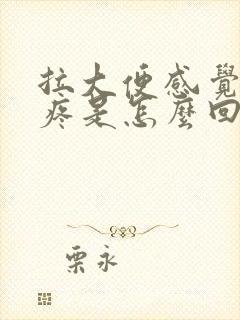 拉大便感覺
疼是怎麼回
栗永